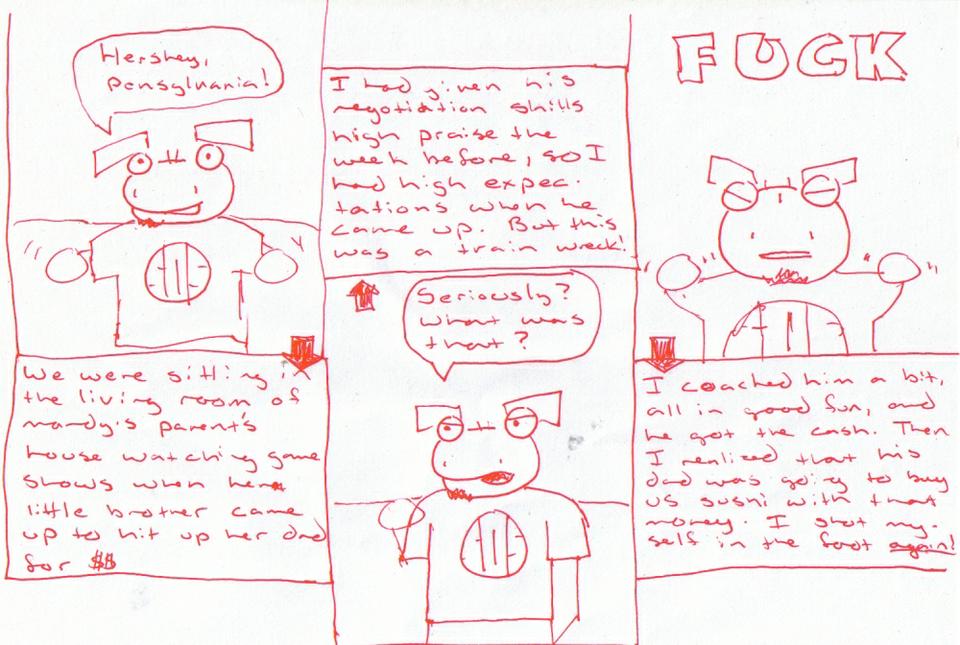 Hershey,
Pensylvania!
We were sitting in
the living room of
mandy's parent's
house watching game
shows when her
little brother came
up to hit up her dad
for $$
I had given his
negotiation skills
high praise the
week before, so I
had high expec-
tations when he
came up. But this
was a train wreck!
Seriously?
what was
that?
FUCK
I coached him a bit,
all in good fun, and
he got the cash. Then
I realized that his
dad was going to buy
us sushi with that
money. I shot my-
self in the foot again!